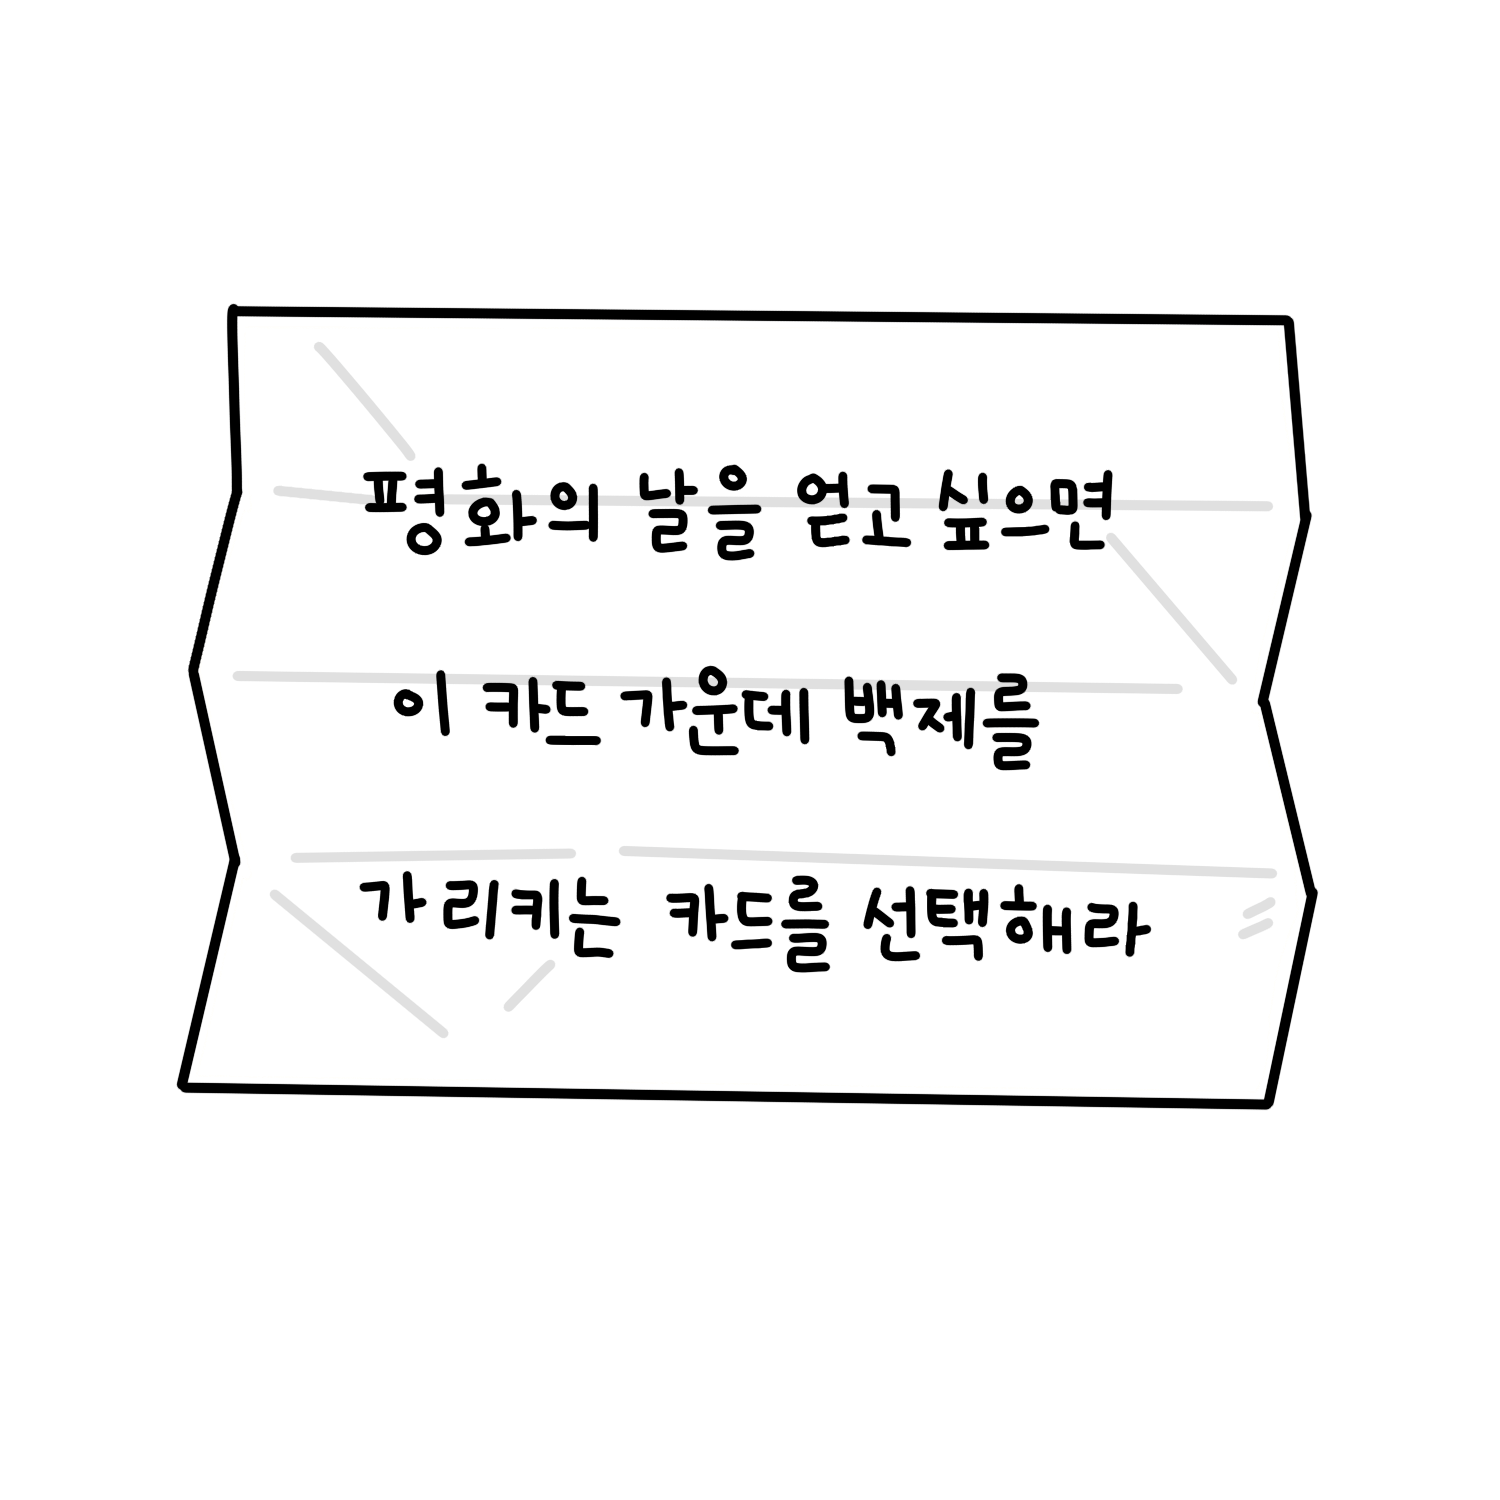 평화의 날을 얻고 싶으면
이 카드 가운데 백제를
가리키는 카드를 선택해라